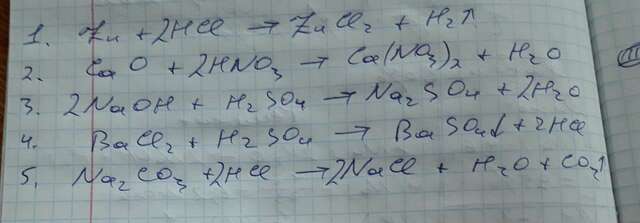 1. Zn + 2HCl → ZnCl₂ + H₂↑
2. CaO + 2HNO₃ → Ca(NO₃)₂ + H₂O
3. 2NaOH + H₂SO₄ → Na₂SO₄ + 2H₂O
4. BaCl₂ + H₂SO₄ → BaSO₄↓ + 2HCl
5. Na₂CO₃ + 2HCl → 2NaCl + H₂O + CO₂↑